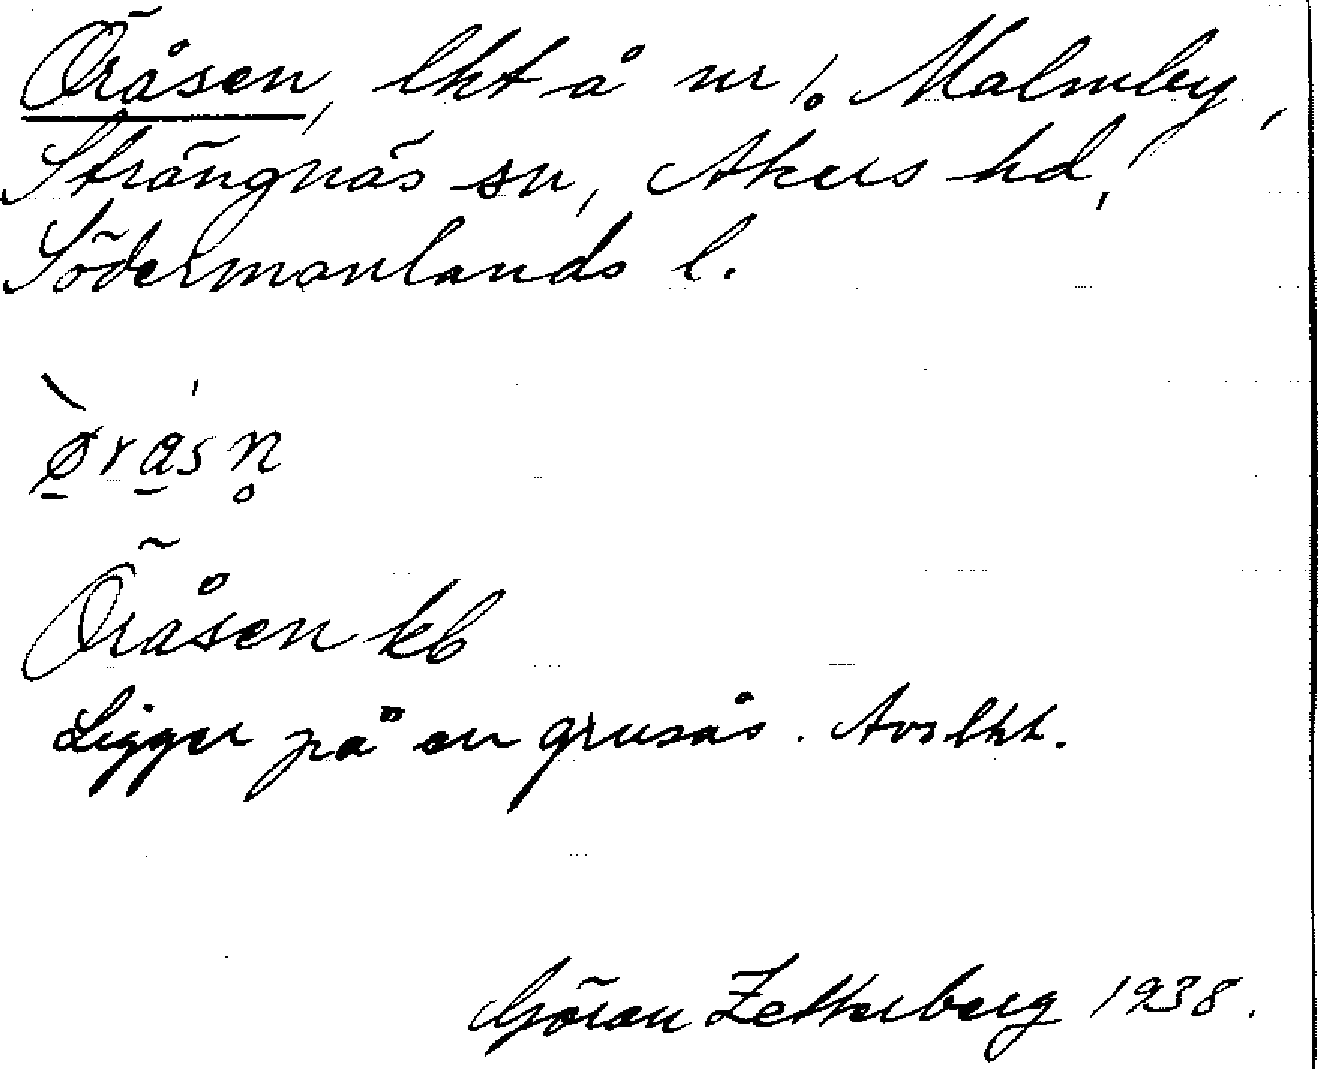 Öråsen, lht å nr 1. Malmby,
Strängnäs sn, Åkers hd,
Södermanlands l.
ø̱̀rá̱sn̥
Öråsen kb
Ligger på en grusås. Avs lht.
Göran Zetterberg 1938.